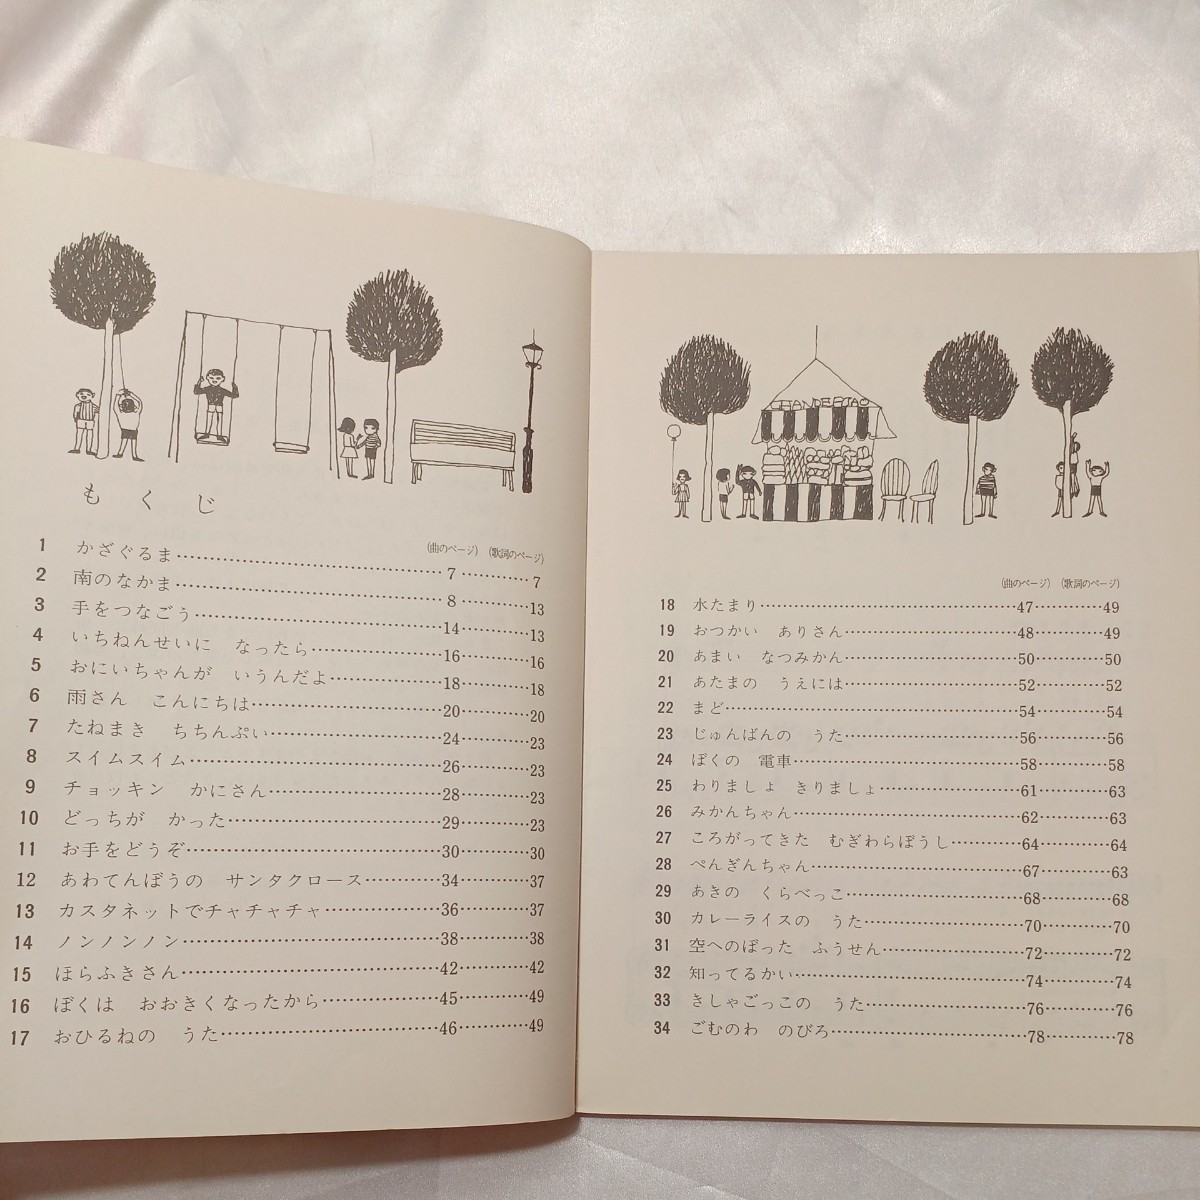 もくじ
(曲のページ) (歌詞のページ)
1 かざぐるま…………7…………7
2 南のなかま…………8…………13
3 手をつなごう…………14…………13
4 いちねんせいに なったら…………16…………16
5 おにいちゃんが いうんだよ…………18…………18
6 雨さん こんにちは…………20…………20
7 たねまき ちちんぷい…………24…………23
8 スイムスイム…………26…………23
9 チョッキン かにさん…………28…………23
10 どっちが かった…………29…………23
11 お手をどうぞ…………30…………30
12 あわてんぼうの サンタクロース…………34…………37
13 カスタネットでチャチャチャ…………36…………37
14 ノンノンノン…………38…………38
15 ほらふきさん…………42…………42
16 ぼくは おおきくなったから…………45…………49
17 おひるねの うた…………46…………49
(曲のページ) (歌詞のページ)
18 水たまり…………47…………49
19 おつかい ありさん…………48…………49
20 あまい なつみかん…………50…………50
21 あたまの うえには…………52…………52
22 まど…………54…………54
23 じゅんばんの うた…………56…………56
24 ぼくの 電車…………58…………58
25 わりましょ きりましょ…………61…………63
26 みかんちゃん…………62…………63
27 ころがってきた むぎわらぼうし…………64…………64
28 ぺんぎんちゃん…………67…………63
29 あきの くらべっこ…………68…………68
30 カレーライスの うた…………70…………70
31 空へのぼった ふうせん…………72…………72
32 知ってるかい…………74…………74
33 きしゃごっこの うた…………76…………76
34 ごむのわ のびろ…………78…………78